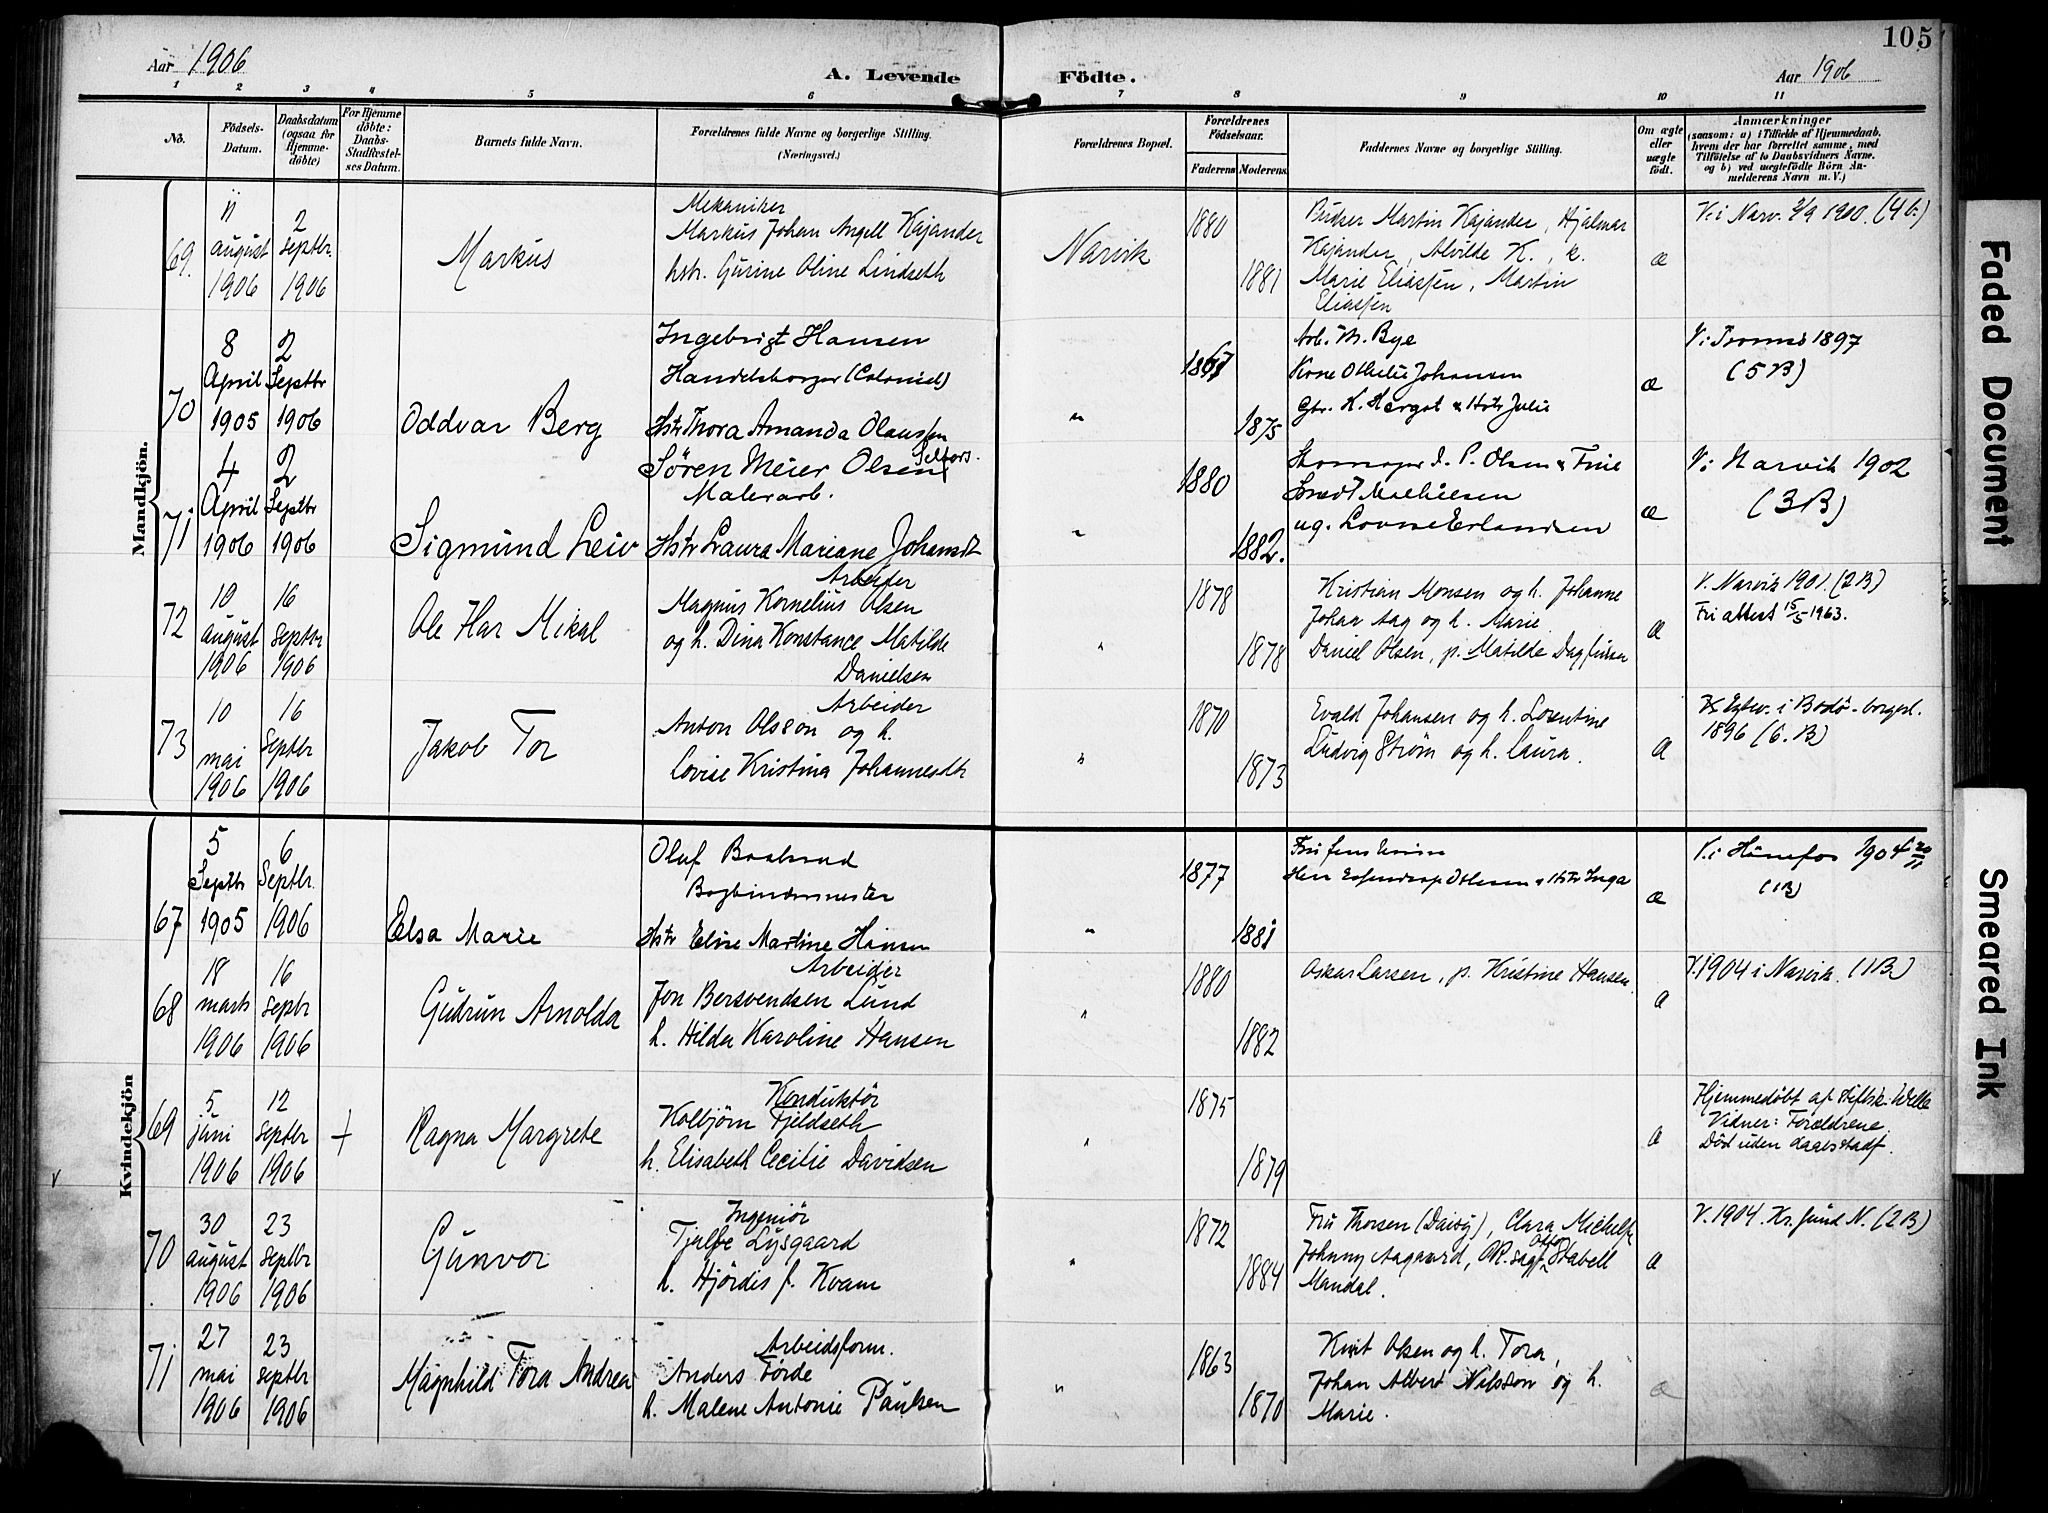 105
Aar 1906
A. Levende
Födte.
Aar 1906
1 2 3 4 5 6 7 8 9 10 11
No.
Födsels-
Datum.
Daabsdatum
(ogsaa for
Hjemme-
döbte)
For Hjemme
döbte:
Daabs-
Stadfæstel-
ses Datum.
Barnets fulde Navn.
Forældrenes fulde Navne og borgerlige Stilling.
(Næringsvei.)
Forældrenes Bopæl.
Forældrenes
Födselsaar.
Faderens
Moderens
Faddernes Navne og borgerlige Stilling.
Om ægte
eller
uægte
födt.
Anmærkninger
(saasom: a) i Tilfælde af Hjemmedaab.
hvem der har forrettet samme, med
Tilföielse af to Daabsvidners Navne.
og b) ved uægtefödte Börn An-
melderens Navn m. V.)
Mandkjön.
69.
11
august
1906
2
septbr.
1906
Markus
Mekaniker
Markus Johan Angell Kajander
hstr. Gurine Oline Lindseth
Narvik
1880
1881
Martin Kajander, Hjalmar
Kajander, Alvilde K., k.
Marie Eliassen, Martin
Eliassen
æ
V. i Narv. 2/9 1900. (4 b.)
70
8
April
1905
2
Septbr
1906
Oddvar Berg
Ingebrigt Hansen
Handelsborger (Colonial)
Hstr Thora Amanda Olaussen
"
1875
Arb. M. Bye
Kone Othelie Johansen
Gbr. H. Hergot & Hstr Julie
æ
V. i Tromsö 1897
(5 B)
71
4
April
1906
2
Septbr
1906
Sigmund Leiv
Søren Meier Olsen
Malerarb.
Hstr Laura Mariane Johansdt
"
1880
1882.
P. Olsen & Trie
ug. Lovise Erlandsen
æ
V. i Narvik 1902
(3 B)
72
10
august
1906
16
septbr
1906
Ole Har Mikal
Arbeider
Magnus Kornelius Olsen
og h. Dina Konstance Matilde
Danielsen
"
1878
1878
Kristian Monsen og h. Johanne
Johan Aag og h. Marie
Daniel Olsen, p. Matilde Dagfinsen
æ
V. Narvik 1901. (2 B)
Fri attest 15/5 1963.
73
10
mai
1906
16
septbr
1906
Jakob Tor
Arbeider
Anton Olsson og h.
Lovise Kristina Johannesdtr
"
1870
1873
Evald Johansen og h. Losentine
Ludvig Strøm og h. Laura.
æ
i Bodö - borgerl.
1896 (6. B)
Kvindekjön
67
5
Septbr
1905
6
Septbr.
1906
Elsa Marie
Oluf Braabraad
Bogbindermester
Hstr Elise Martine Hansen
"
1877
1881
æ
V. i Hønefos 1904 20/11
(1 B)
68
18
marts
1906
16
septbr
1906
Gudrun Arnolda
Arbeider
Jon Bersvendsen Lund
h. Hilda Karoline Hansen
"
1880
1882
Oskar Larsen, p. Kristine Hansen.
æ
V. 1904 i Narvik. (1 B.)
69
5
juni
1906
12
septbr
1906
+
Ragna Margrete
Konduktör
Kolbjörn Fjeldseth
h. Elisabeth Cecilie Davidsen
"
1875
1879
æ
Hjemmedöbt af stiftsk. Welle
Vidner: Forældrene.
Död uden daabsstadf.
70
30
august
1906
23
septbr
1906
Gunvor
Ingeniör
Tjalfe Lysgaard
h. Hjördis f. Kvam
"
1872
1884
Fru Thorsen (Daisy), Clara Michelsen
Johnny Aagaard, O.R. sagf. Otto Stabell
Mandal.
æ
V. 1904. Kr.sund N. (2 B)
71
27
mai
1906
23
septbr
1906
Magnhild Tora Andrea
Arbeidsform.
Anders Förde
h. Malene Antonie Paulsen
"
1863
1870
Knut Olsen og h. Tora,
Johan Albert Nilsson og h.
Marie.
æ
Faded Document
Smeared Ink